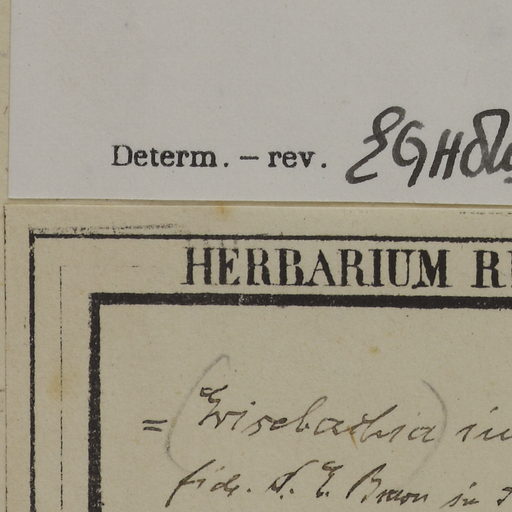 Determ. – rev.
HERBARIUM R
= (Grisebachia) in
fide N. E. Brown in